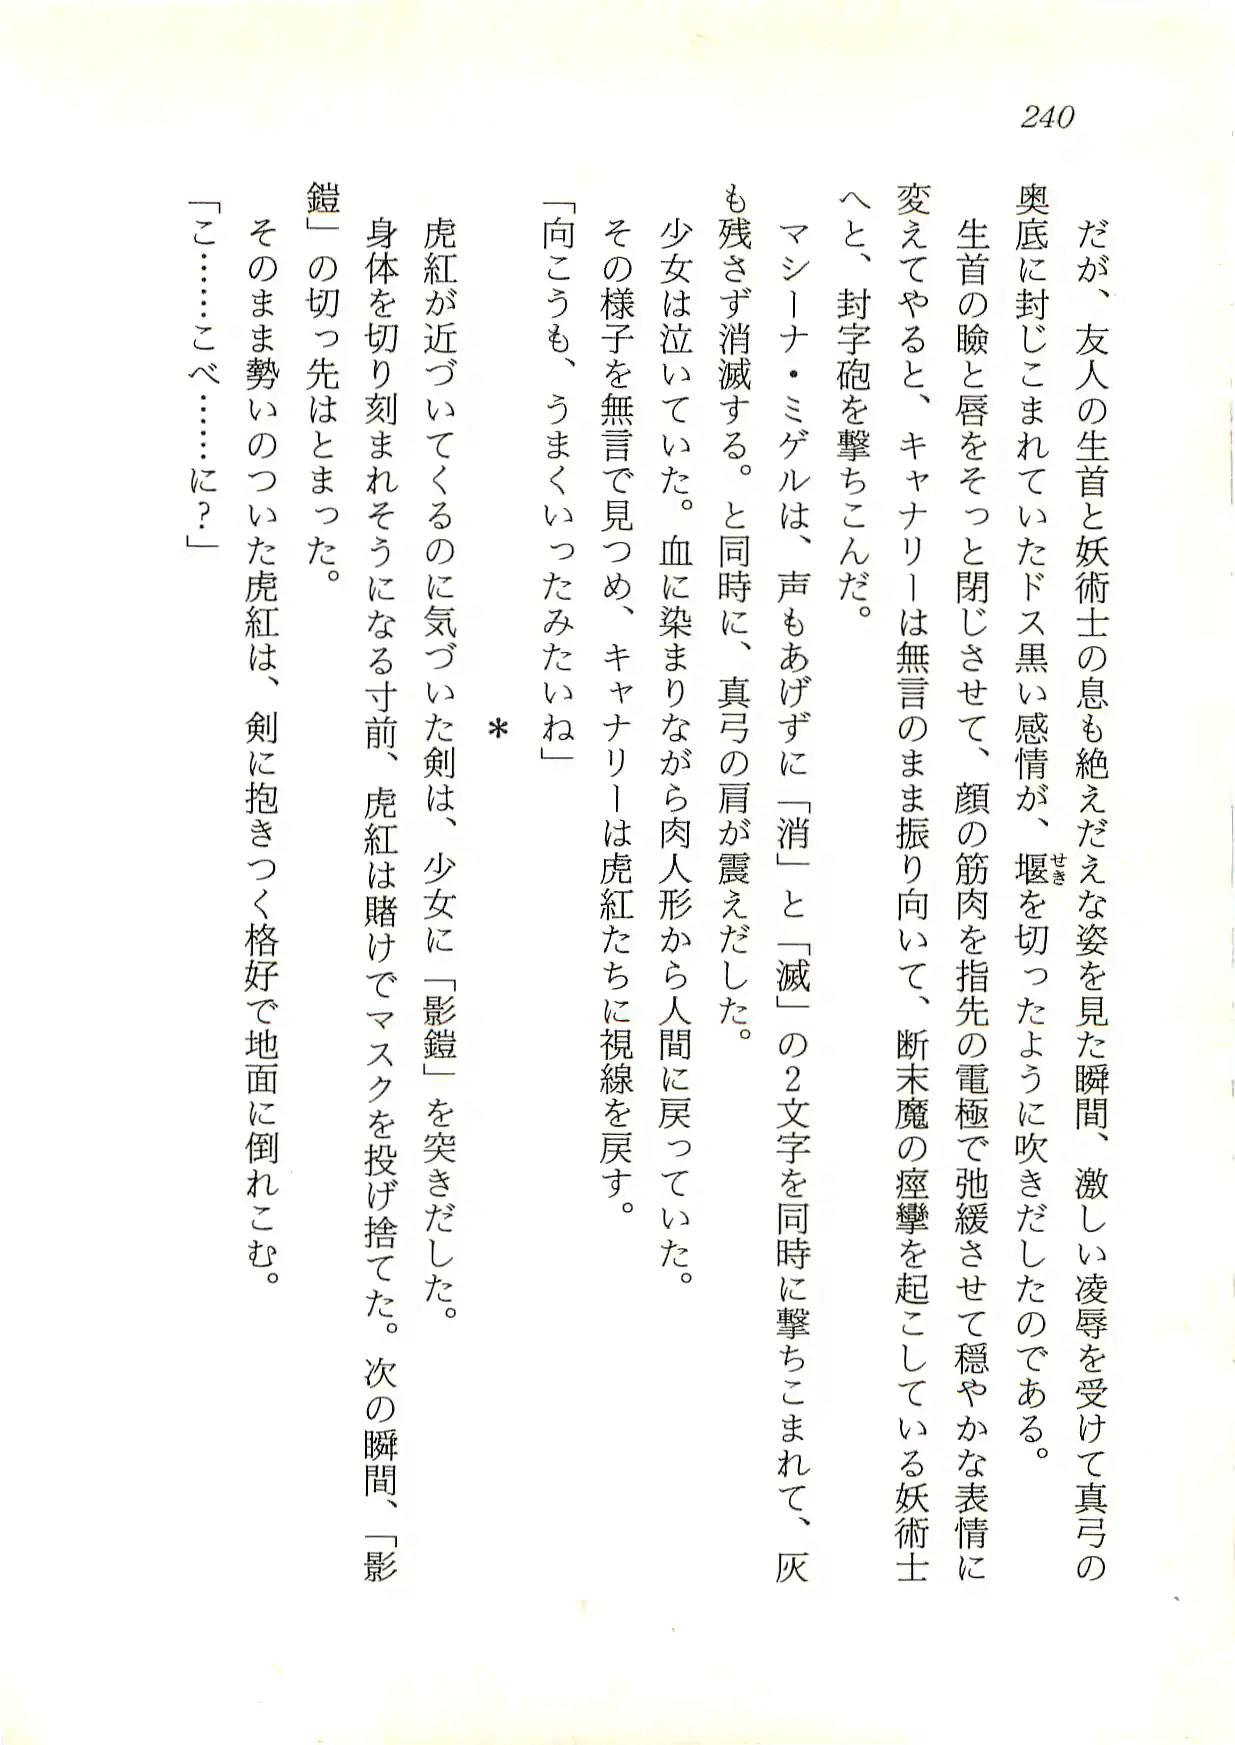 240
だが、友人の生首と妖術士の息も絶えだえな姿を見た瞬間、激しい凌辱を受けて真弓の
奥底に封じこまれていたドス黒い感情が、堰を切ったように吹きだしたのである。
せき
生首の瞼と唇をそっと閉じさせて、顔の筋肉を指先の電極で弛緩させて穏やかな表情に
変えてやると、キャナリーは無言のまま振り向いて、断末魔の痙攣を起こしている妖術士
へと、封字砲を撃ちこんだ。
マシーナ・ミゲルは、声もあげずに「消」と「滅」の2文字を同時に撃ちこまれて、灰
も残さず消滅する。と同時に、真弓の肩が震えだした。
少女は泣いていた。血に染まりながら肉人形から人間に戻っていた。
その様子を無言で見つめ、キャナリーは虎紅たちに視線を戻す。
「向こうも、うまくいったみたいね」
*
虎紅が近づいてくるのに気づいた剣は、少女に「影鎧」を突きだした。
身体を切り刻まれそうになる寸前、虎紅は賭けでマスクを投げ捨てた。次の瞬間、「影
鎧」の切っ先はとまった。
そのまま勢いのついた虎紅は、剣に抱きつく格好で地面に倒れこむ。
「こ……こべ……に?」